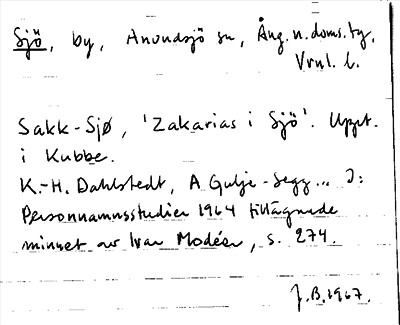 Sjö, by, Anundsjö sn, Ång. n. doms.bg,
Vrnl. l.
Sakk-Sjø, 'Zakarias i Sjö'. Uppt.
i Kubbe.
K.-H. Dahlstedt, A Gulje-Segg... I:
Personnamnsstudier 1964 tillägnade
minnet av Ivar Modéer, s. 274.
J.B. 1967.